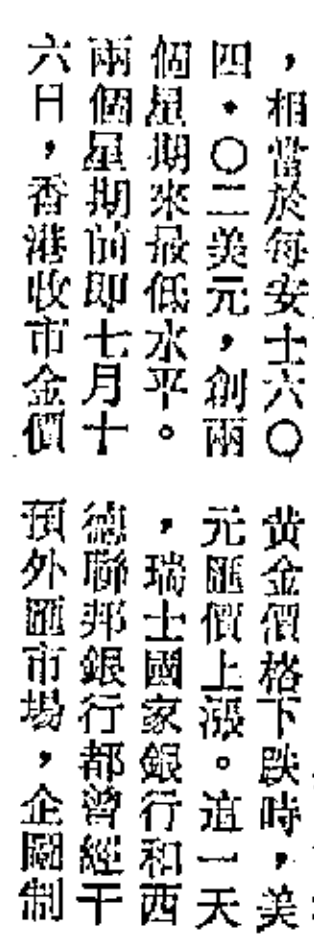 ，相當於每安士六〇
四．〇二美元，創兩
個星期來最低水平。
兩個星期前即七月十
六日，香港收市金價
黃金價格下跌時，美
元匯價上漲。這一天
，瑞士國家銀行和西
德聯邦銀行都曾經干
預外匯市場，企圖制